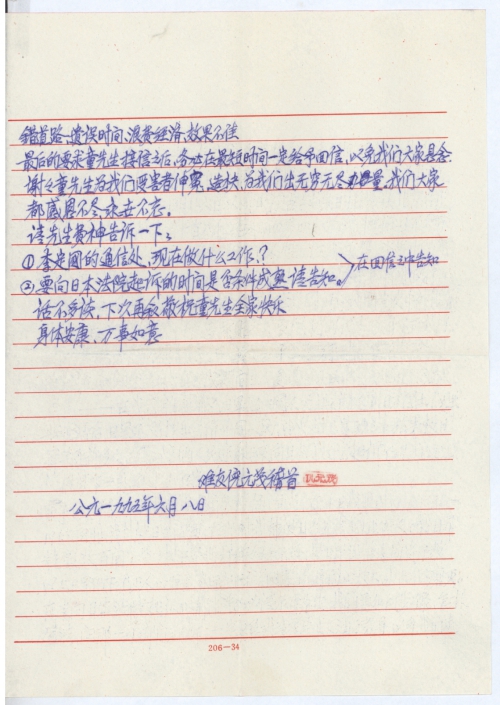 错道路、贵误时间、浪费经济、效果不佳
最后的要求童先生接信之后,务必在最短时间一定给予回信,以免我们大家悬念.
谢々童先生为我们受害者伸冤、造状,为我们出无穷无尽力量,我们大家
都感恩不尽、永世不忘。
请先生费神告诉一下:
①李定國的通信处、现在做什么工作,?
②要向日本法院起诉的时间是否条件成熟 请告知。
〉在回信之中告知
话不多谈、下次再叙 敬祝童先生全家快乐
身体安康、万事如意
难友倪元茂稽首
公元一九九五年六月八日
206—34